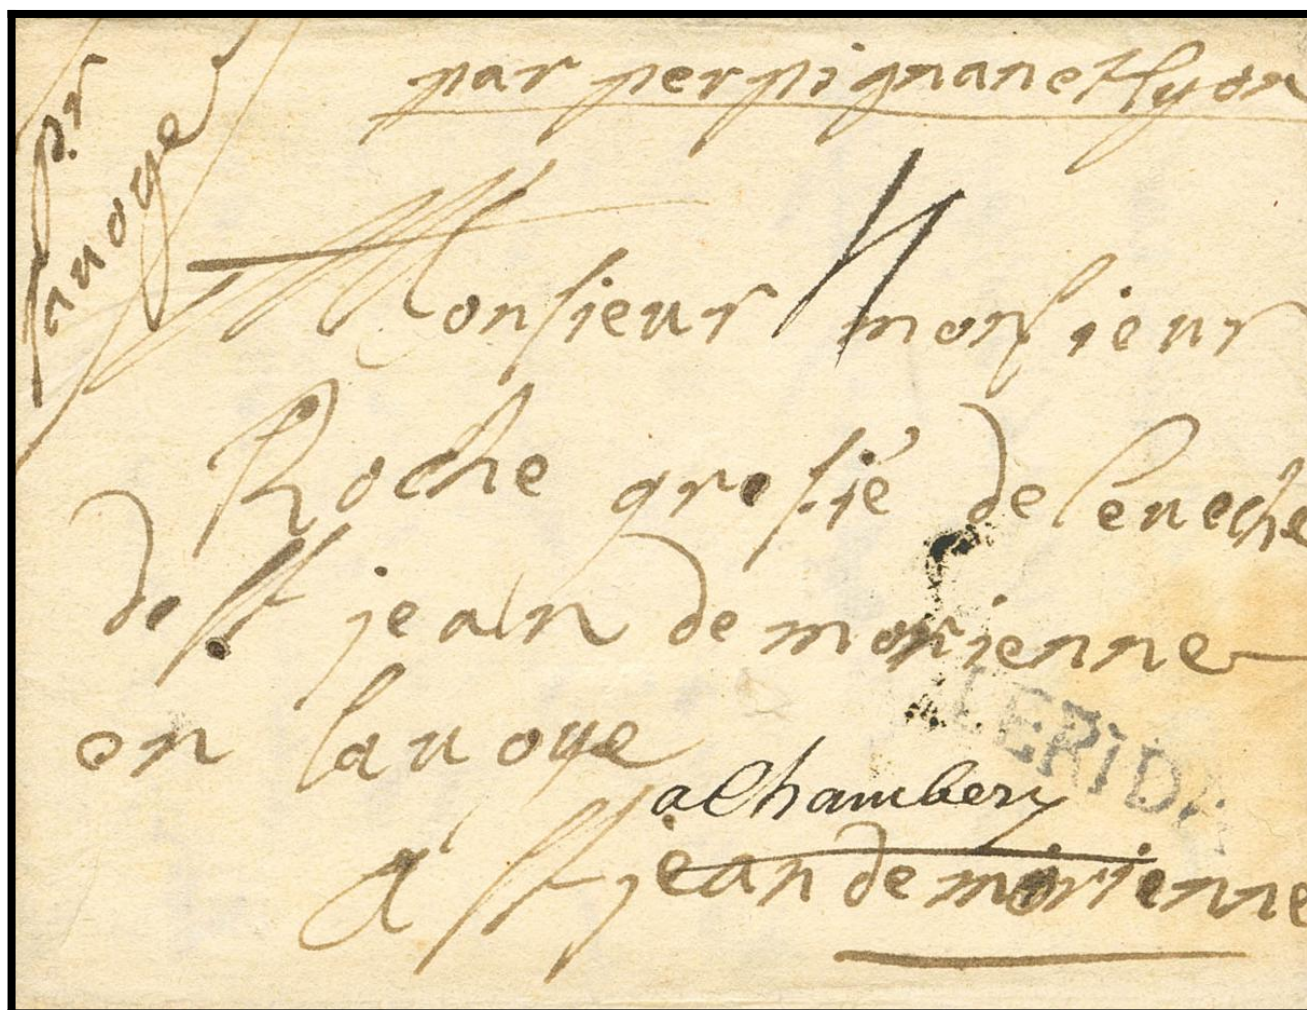 par perpignan et lyon
pr
sauoye
Monsieur monsieur
Roche grefié de leueche
de st jean de morienne
en sauoye
LERIDA
a Chambery
A st jean de morienne